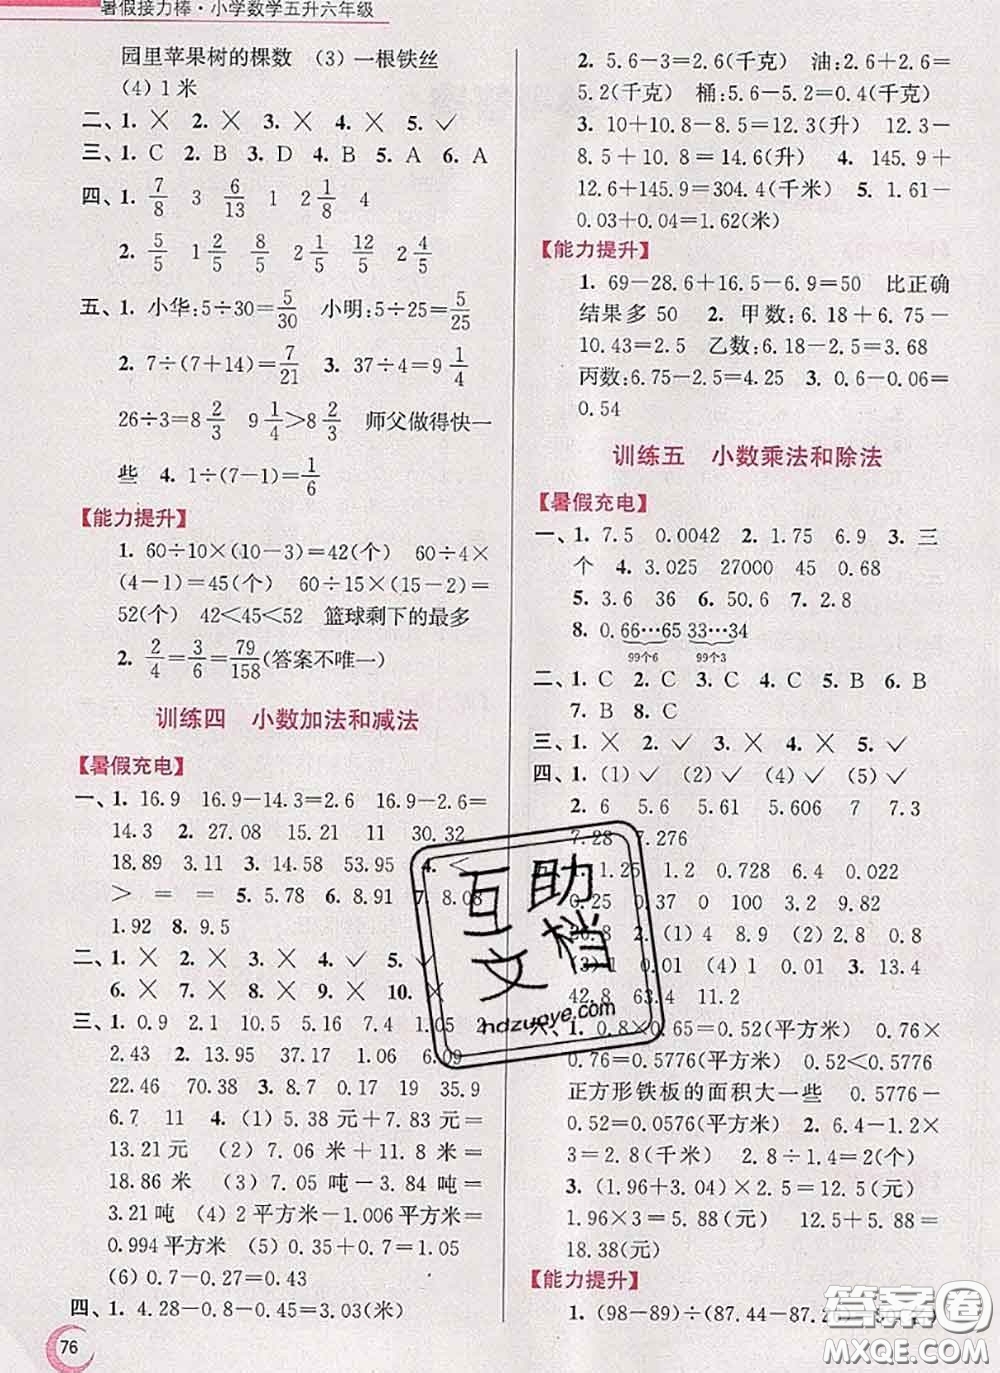 暑假接力棒·小学数学五升六年级
园里苹果树的棵数 (3)一根铁丝
(4)1米
二、1. × 2. × 3. × 4. × 5. ✓
三、1. C 2. B 3. D 4. B 5. A 6. A
四、1. 7/8 3 6/13 1 2 1/8 4
2. 5/5 1 2/5 8/5 2 1/5 12/5 2 4/5
五、1. 小华:5÷30=5/30 小明:5÷25=5/25
2. 7÷(7+14)=7/21 3. 37÷4=9 1/4
26÷3=8 2/3 9 1/4>8 2/3 师父做得快一
些 4. 1÷(7-1)=1/6
【能力提升】
1. 60÷10×(10-3)=42(个) 60÷4×
(4-1)=45(个) 60÷15×(15-2)=
52(个) 42<45<52 篮球剩下的最多
2. 2/4=3/6=79/158(答案不唯一)
训练四 小数加法和减法
【暑假充电】
一、1. 16.9 16.9-14.3=2.6 16.9-2.6=
14.3 2. 27.08 15.21 11 30.32
18.89 3.11 3. 14.58 53.95 4. <
> = = 5. 5.78 6. 8.91 7. 8.08
1.92 8. 9.5
二、1. × 2. × 3. × 4. ✓ 5. ✓
6. × 7. × 8. × 9. × 10. ×
三、1. 0.9 2.1 10.5 5.16 7.4 1.05 2
2.43 2. 13.56 37.17 1.46 6.09
22.46 70.38 3. 8.7 0.17 19 15.9
6.7 11 4. (1) 5.38元+7.83元=
13.21元 (2) 7.06米+11.8米=
18.86米 (3) 7.05吨-3.84吨=
3.21吨 (4) 2平方米-1.006平方米=
0.994平方米 (5) 0.35+0.7-0.04=1.01
(6) 0.7-0.27=0.43
四、1. 4.28-0.8-0.45=3.03(米)
76
2. 5.6-3=2.6(千克) 油:2.6+2.6=
5.2(千克) 桶:5.6-5.2=0.4(千克)
3. 10+10.8-8.5=12.3(升) 12.3-
8.5+10.8=14.6(升) 4. 145.9+
12.6+145.9=304.4(千米) 5. 1.61-
0.03+0.04=1.62(米)
【能力提升】
1. 69-28.6+16.5-6.9=50 比正确
结果多50 2. 甲数:6.18+6.75-
10.43=2.5 乙数:6.18-2.5=3.68
丙数:6.75-2.5=4.25 3. 0.6-0.06=
0.54
训练五 小数乘法和除法
【暑假充电】
一、1. 7.5 0.0042 2. 1.75 6.9 3. 三
个 4. 3.025 27000 45 0.68
5. 3.6 36 6. 50.6 7. 2.8
8. 0.66…65 33…34
99个6 99个3
二、1. C 2. C 3. C 4. C 5. B 6. B
7. B 8. C
三、1. × 2. ✓ 3. × 4. × 5. ✓
四、1. (1) ✓ (2) ✓ (4) ✓ (5) ✓
2. 6 5.6 5.61 5.606 7 7.3
7.28 7.276
1. 1.25 1.2 0.728 6.4 0.022
0.25 0.37 0 100 3.2 9.82
2. (1) 4 8.9 (2) 2.8 0.8
0.01 (4) 1 0.01 3. 13.4
42.8 63.4 11.2
1. 0.8×0.65=0.52(平方米) 0.76×
0.76=0.5776(平方米) 0.52<0.5776
正方形铁板的面积大一些 0.5776-
0.52=0.0576(平方米) 2. 6.4-1.2×
×3=2.8(千米) 2.8÷1.4=2(小时)
3. (1.96+3.04)×2.5=12.5(元)
1.96×3=5.88(元) 12.5+5.88=
18.38(元)
【能力提升】
1. (98-89)÷(87.44-87.2
互助文档
hdzuoye.com
答案圈
MXQE.COM